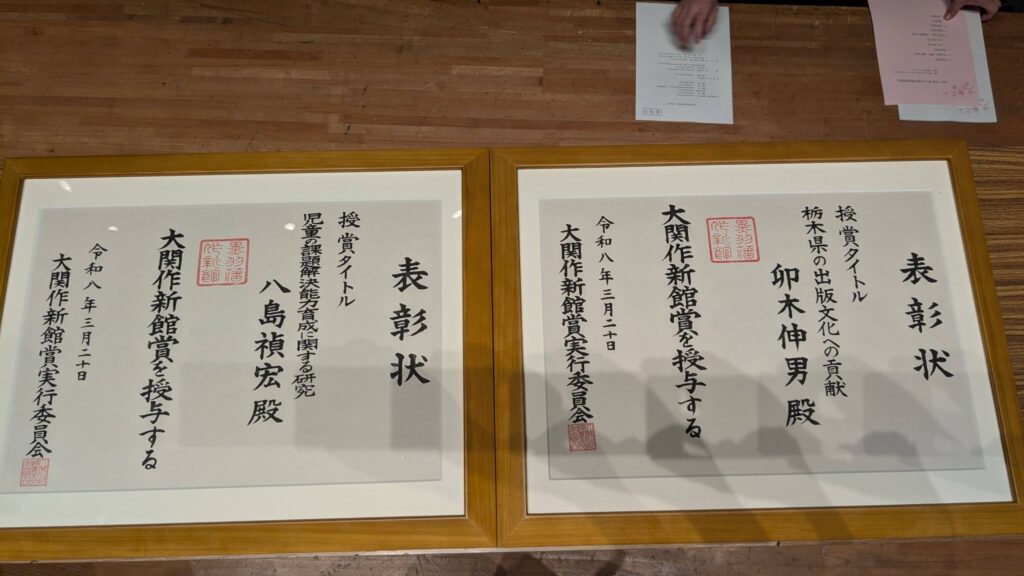 表彰状
授賞タイトル
栃木県の出版文化への貢献
卯木伸男殿
大関作新館賞を授与する
令和八年三月二十日
大関作新館賞実行委員会
表彰状
授賞タイトル
児童の問題解決能力育成に関する研究
八島禎宏殿
大関作新館賞を授与する
令和八年三月二十日
大関作新館賞実行委員会